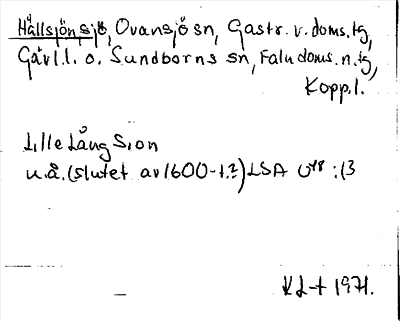 Hållsjön, sjö, Ovansjö sn, Gästr. v. doms. tg,
Gävl. l. o. Sundborns sn, Falu doms. n. tg,
Kopp. l.
Lille Lång Sion
u.å. (slutet av 1600-t.?) LSA U48 :13
1971.